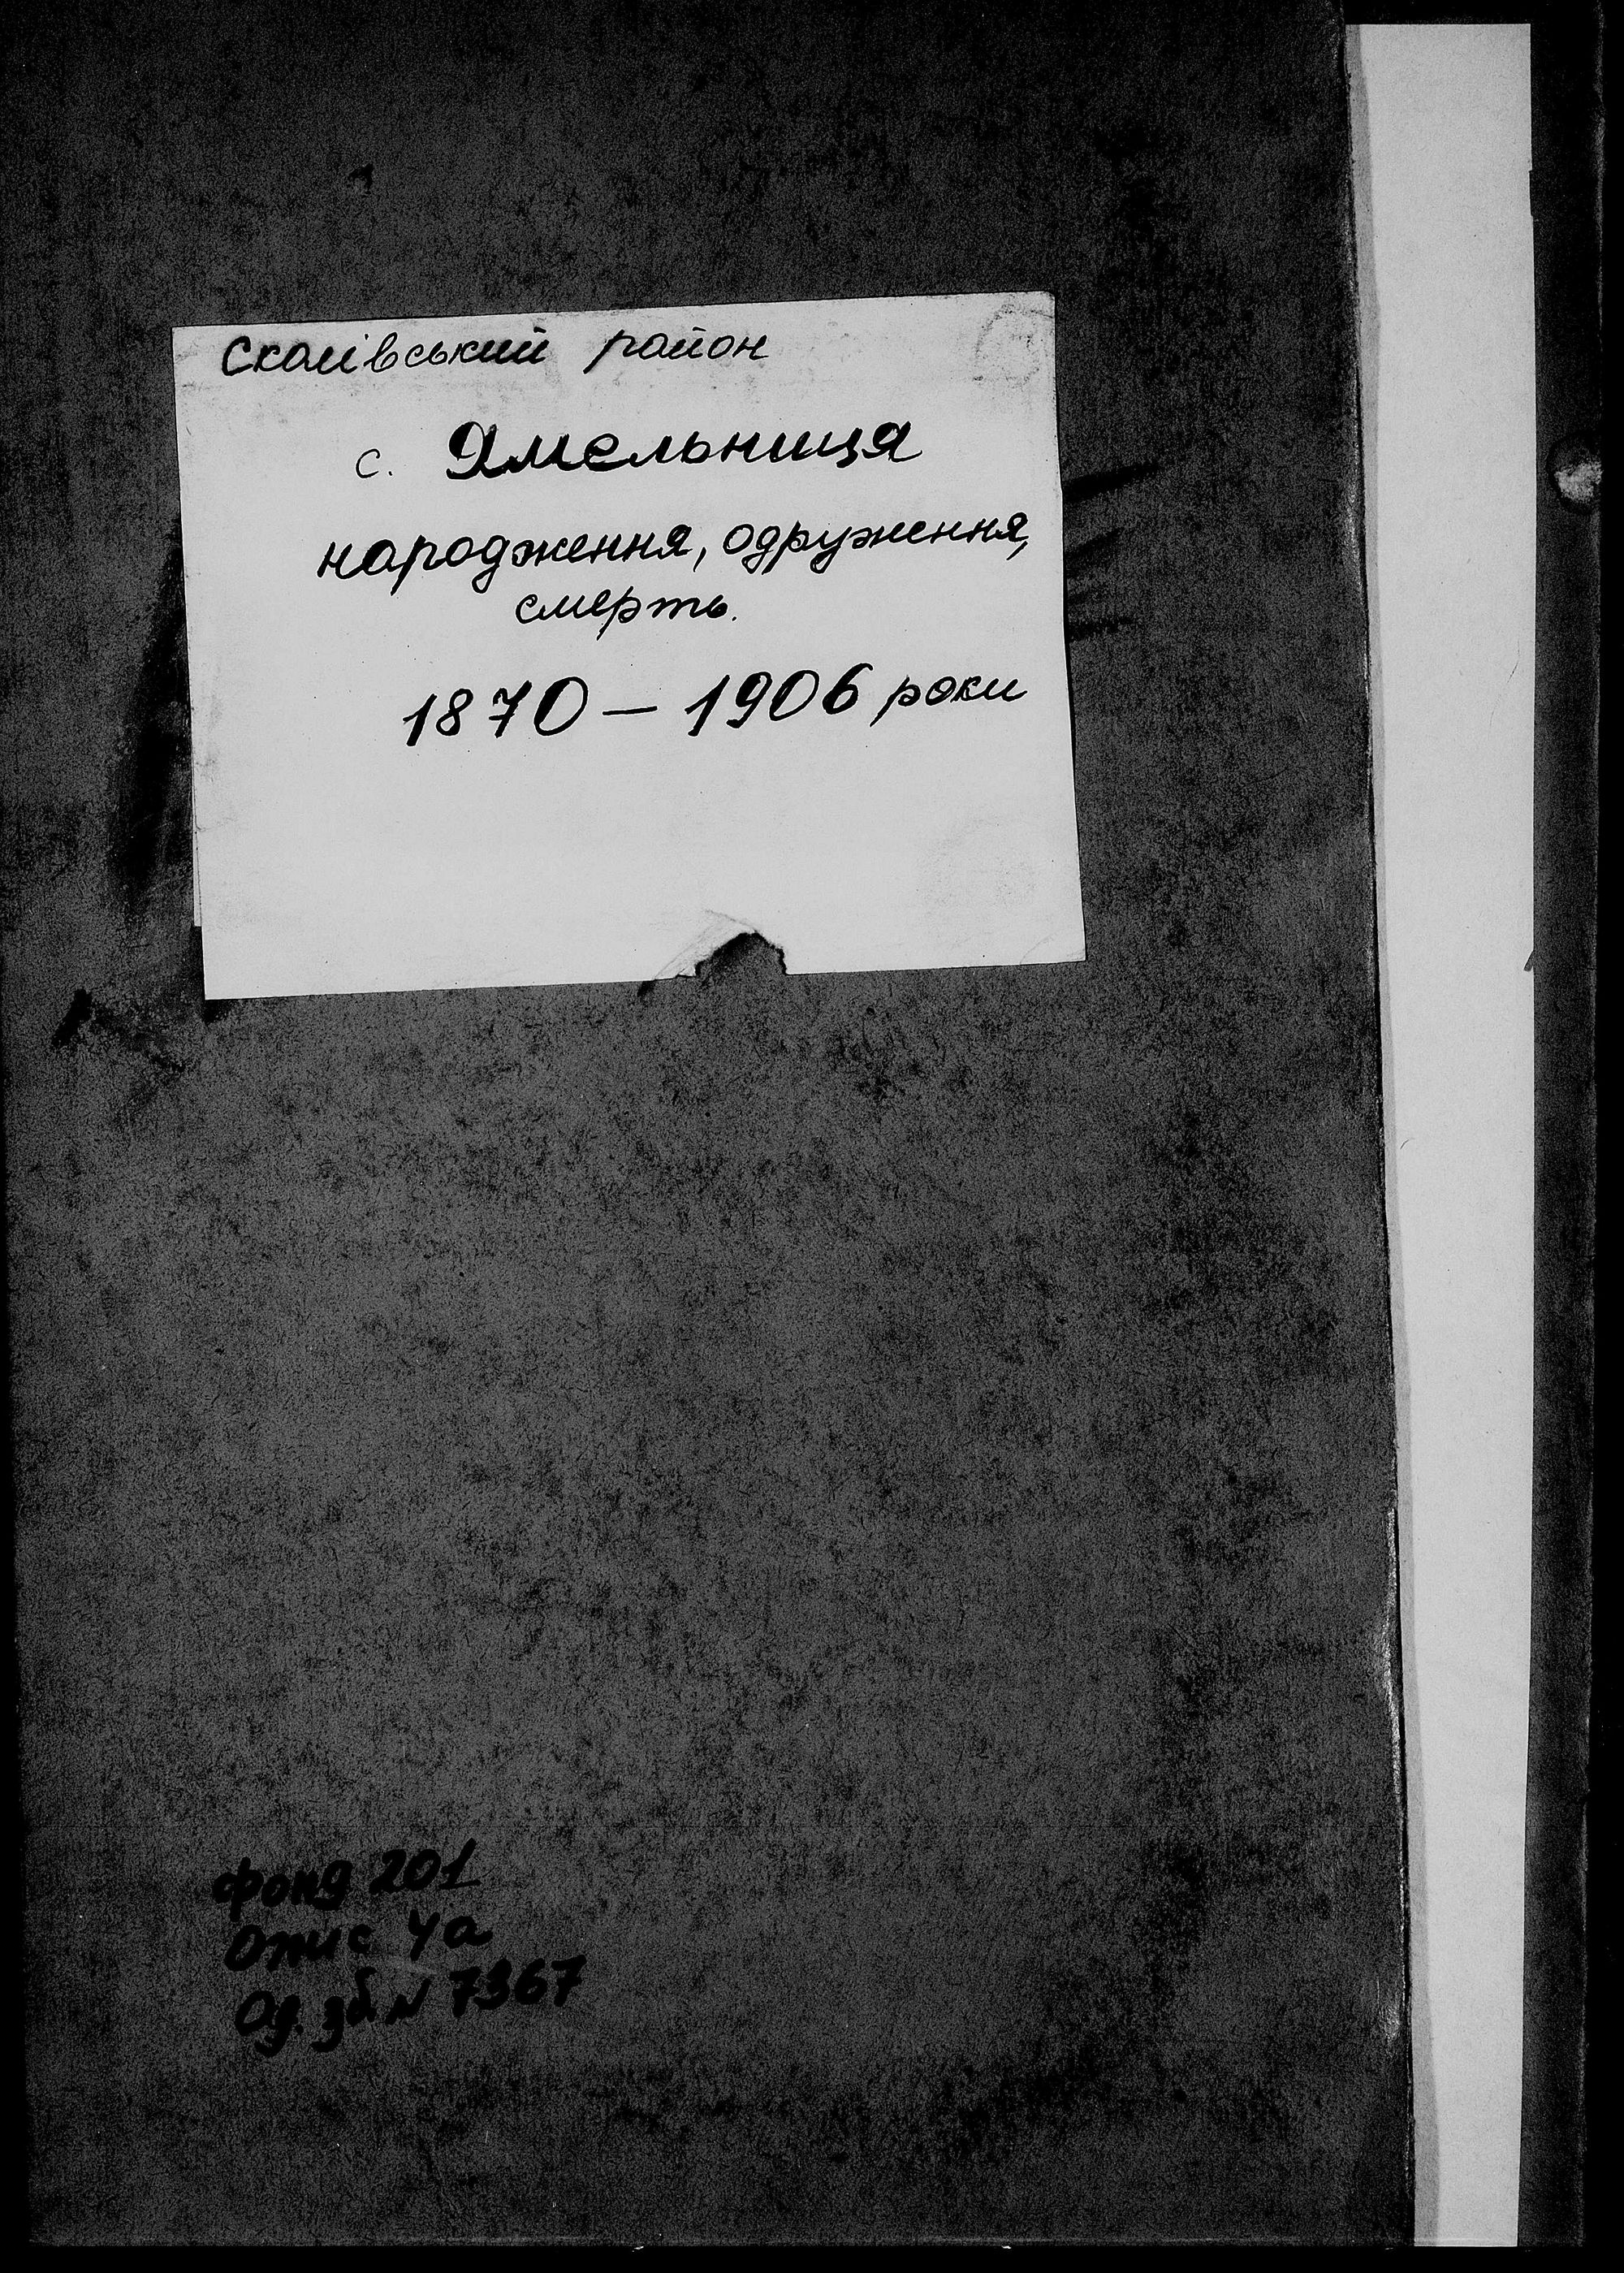 Сколівський район
с. Ямельниця
народження, одруження,
смерть.
1870 – 1906 роки
Фонд 201
Опис 4а
Од. зб. N 7367